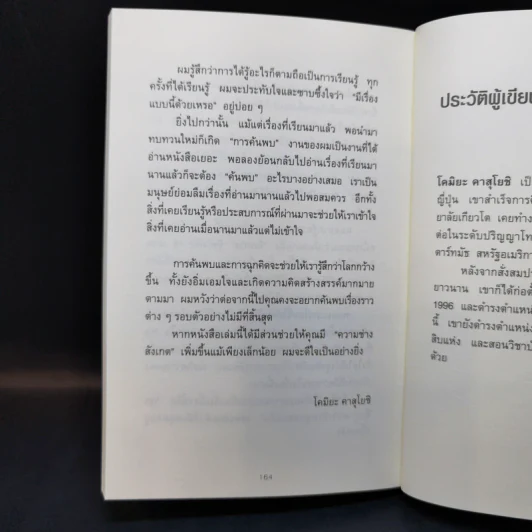 ผมรู้สึกว่าการได้รู้อะไรก็ตามถือเป็นการเรียนรู้ ทุก
ครั้งที่ได้เรียนรู้ ผมจะประทับใจและซาบซึ้งใจว่า “มีเรื่อง
แบบนี้ด้วยเหรอ” อยู่บ่อย ๆ
ยิ่งไปกว่านั้น แม้แต่เรื่องที่เรียนมาแล้ว พอนำมา
ทบทวนใหม่ก็เกิด “การค้นพบ” งานของผมเป็นงานที่ได้
อ่านหนังสือเยอะ พอลองย้อนกลับไปอ่านเรื่องที่เรียนมา
นานแล้วก็จะต้อง “ค้นพบ” อะไรบางอย่างเสมอ เราเป็น
มนุษย์ย่อมลืมเรื่องที่อ่านมานานแล้วไปพอสมควร อีกทั้ง
สิ่งที่เคยเรียนรู้หรือประสบการณ์ที่ผ่านมาจะช่วยให้เราเข้าใจ
สิ่งที่เคยอ่านเมื่อนานมาแล้วแต่ไม่เข้าใจ
การค้นพบและการฉุกคิดจะช่วยให้เรารู้สึกว่าโลกกว้าง
ขึ้น ทั้งยังอิ่มเอมใจและเกิดความคิดสร้างสรรค์มากมาย
ตามมา ผมหวังว่าต่อจากนี้ไปคุณคงจะอยากค้นพบเรื่องราว
ต่าง ๆ รอบตัวอย่างไม่มีที่สิ้นสุด
หากหนังสือเล่มนี้ได้มีส่วนช่วยให้คุณมี “ความช่าง
สังเกต” เพิ่มขึ้นแม้เพียงเล็กน้อย ผมจะดีใจเป็นอย่างยิ่ง
โคมิยะ คาสุโยชิ
164
ประวัติผู้เขียน
โคมิยะ คาสุโยชิ เป็
ญี่ปุ่น เขาสำเร็จการศึ
ยาลัยเกียวโต เคยทำง
ต่อในระดับปริญญาโท
ดาร์ทมัธ สหรัฐอเมริกา
หลังจากสั่งสมป
ยาวนาน เขาก็ได้ก่อตั้
1996 และดำรงตำแหน่
นี้ เขายังดำรงตำแหน่ง
สิบแห่ง และสอนวิชาบั
ด้วย